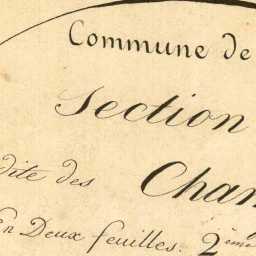 Commune de
Section
dite des
En Deux feuilles. 2ème